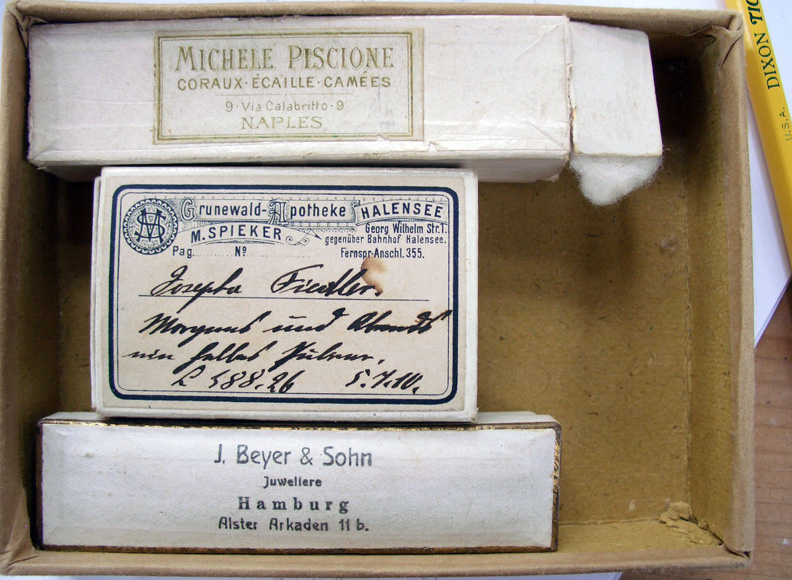 MICHELE PISCIONE
CORAUX·ÉCAILLE·CAMÉES
9·Via Calabritto·9
NAPLES
DIXON TIC
U.S.A.
Grunewald-Apotheke HALENSEE
M. SPIEKER
Georg Wilhelm Str. 1.
gegenüber Bahnhof Halensee.
Pag. No
Fernspr. Anschl. 355.
Josepha Fiedler.
Morgens und Abends
ein halbes Pulver.
488.26 5.7.10.
J. Beyer & Sohn
Juweliere
Hamburg
Alster Arkaden 11 b.